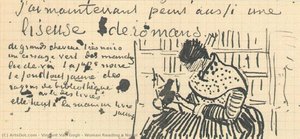 J'ai maintenant peint aussi une
liseuse de romans.
de grand cheveux très noirs
un corsage vert les manches
lie de vin la jupe noire
le fond tout jaune des
rayons de bibliothèque
avec des livres
elle tient la main un livre
jaune
(C) ArtsDot.com - Vincent Van Gogh - Woman Reading a